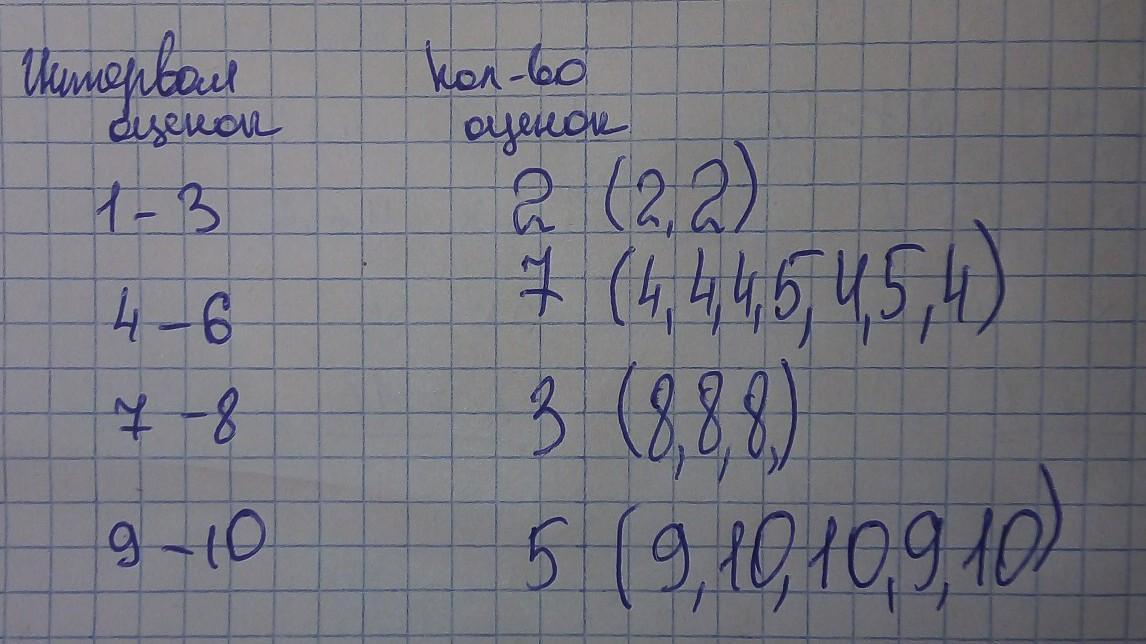 Интервал кол-во
оценок оценок
1-3 2 (2,2)
4-6 7 (4,4,4,5,4,5,4)
7-8 3 (8,8,8,)
9-10 5 (9,10,10,9,10)